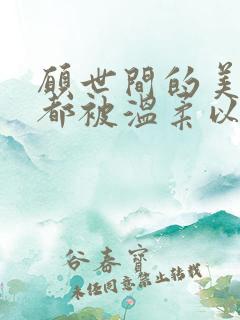 願世間的美
都被溫柔以
谷春寶
未經同意禁止轉載